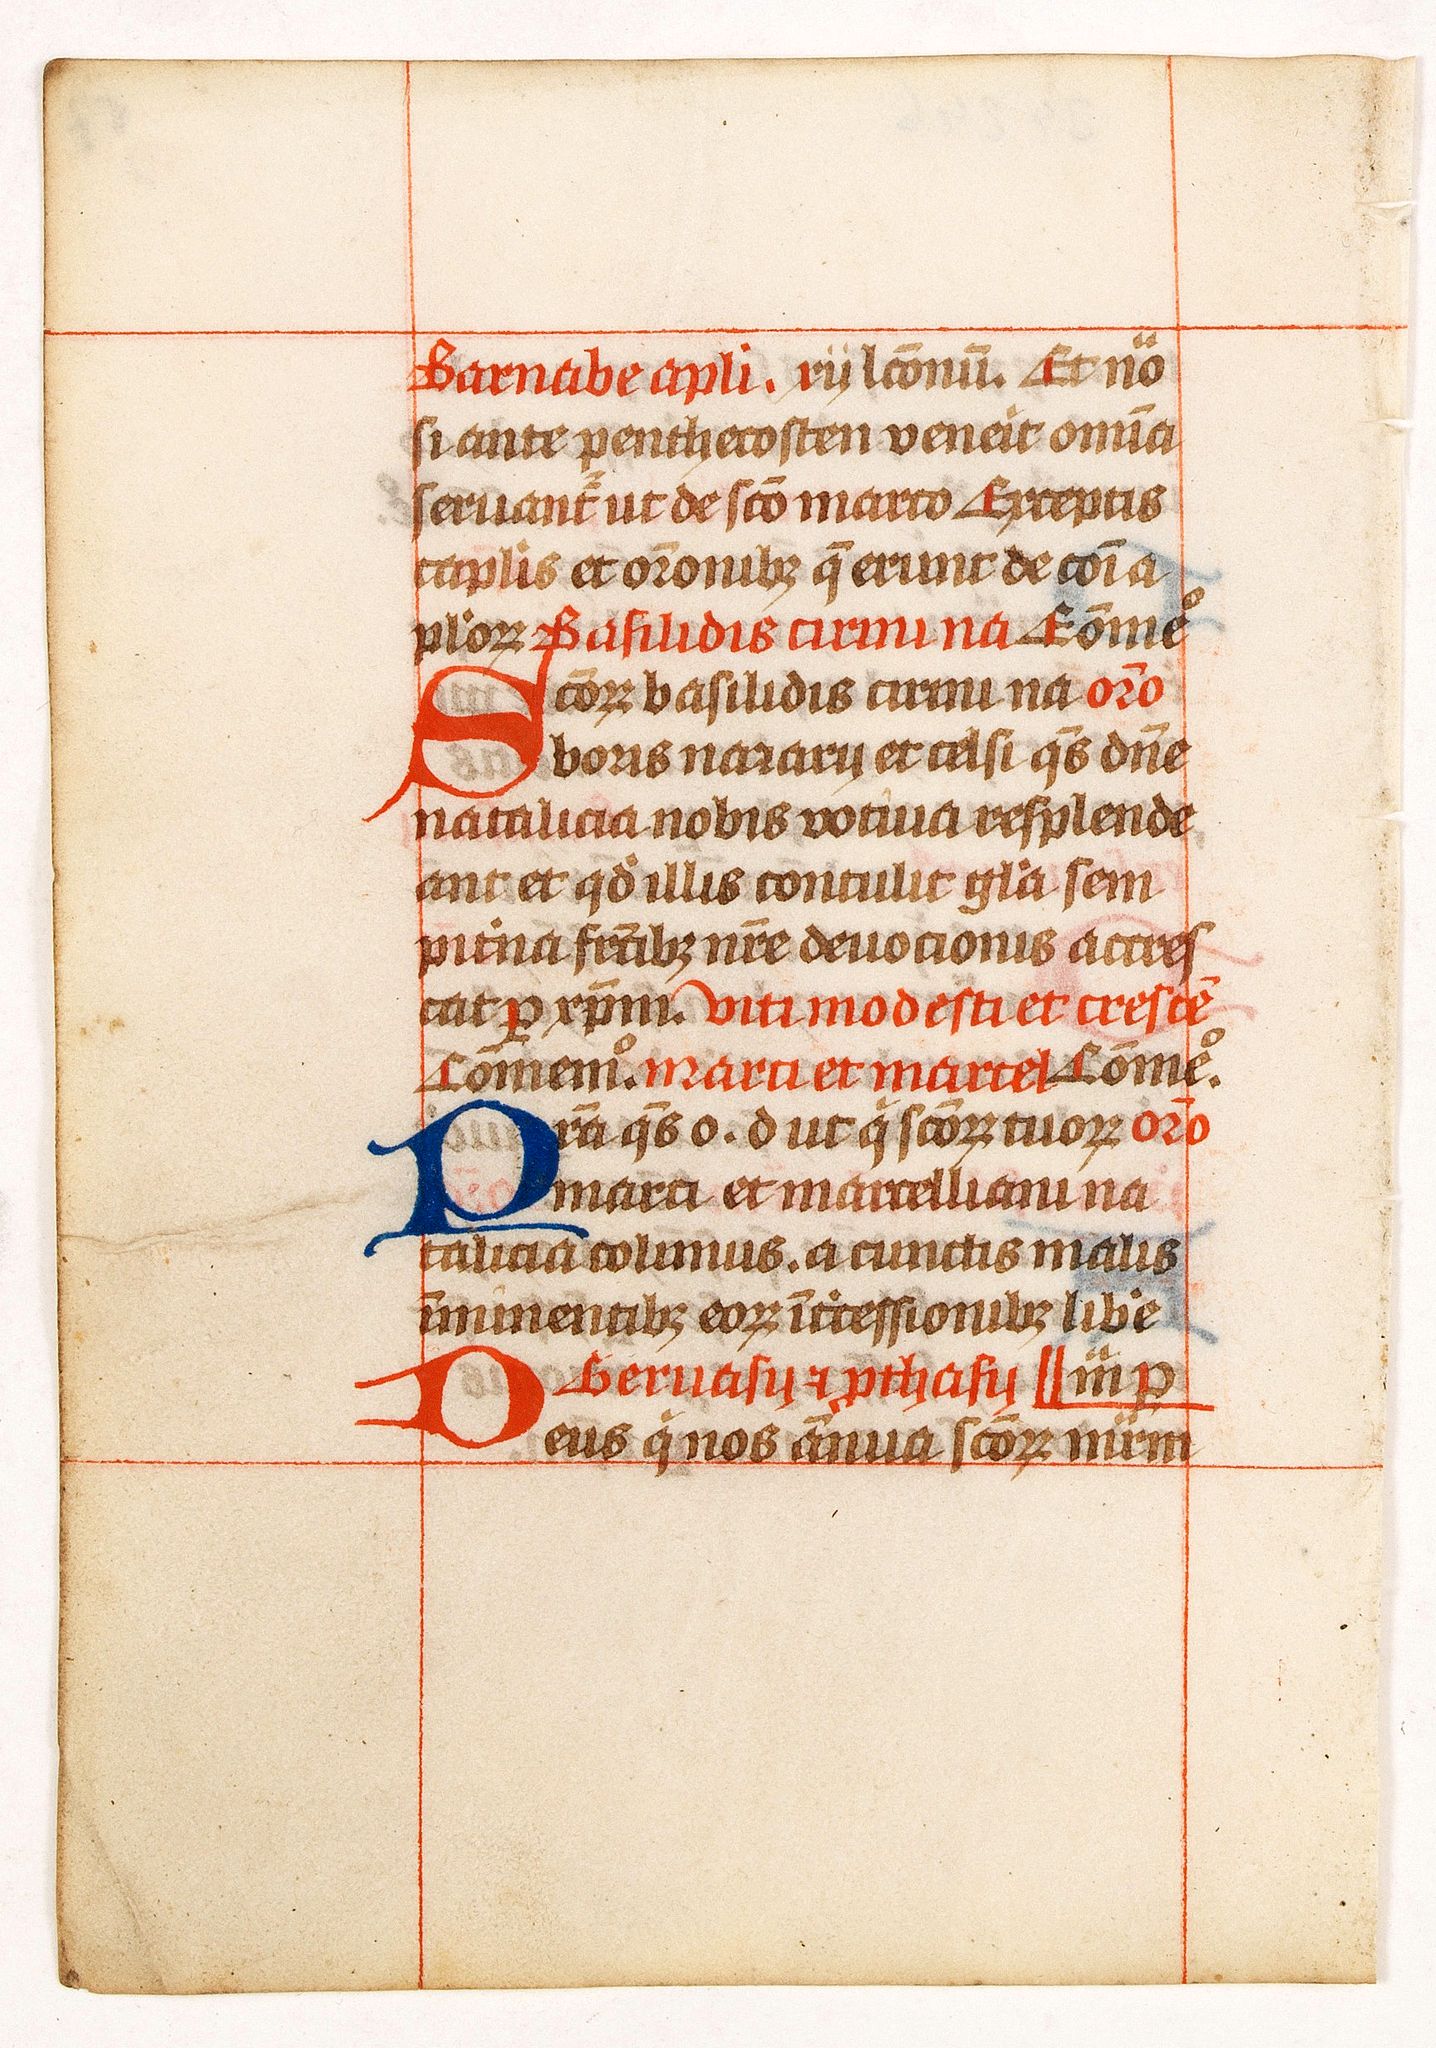 Barnabe apli. xij lcōnū. Et nō
si ante penthecosten veneit omīa
seruant ut de scō marco Exceptis
caplis et orōnibꝫ q̄ erunt de cōi a
plorꝝ Basilidis cirini na Cōmeº
Scōrꝝ basilidis cirini na orō
boris nazarij et celsi q̄s dn̄e
natalicia nobis votiua resplende
ant et qd illis contulit gl̄ia sem
pitna frc̄ibꝫ nr̄e deuocionis accres
cat ꝑ xp̄m. Viti modesti et crescē
Cōmemº. Marci et marcel Cōmeº.
Prā q̄s o. d ut q scōrꝝ tuorꝝ orō
marci et marcelliani na
talicia colimus. a cunctis malis
īminentibꝫ eorꝝ īt̄cessionibꝫ libe
Geruasij ⁊ ꝓthasij iij p
Deus q nos ānua scōrꝝ mr̄m